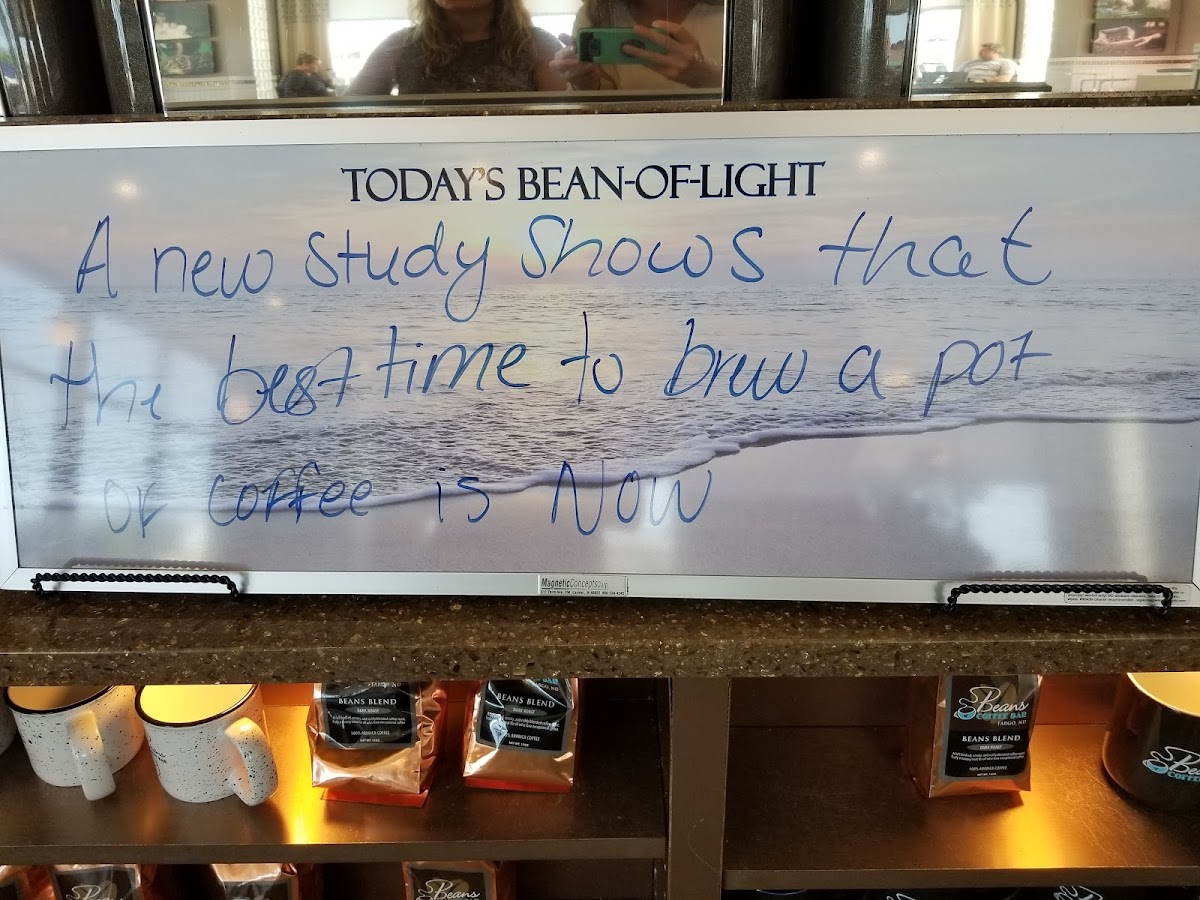 TODAY'S BEAN-OF-LIGHT
A new study shows that
the best time to brew a pot
of coffee is Now
MagneticConcepts
BEANS BLEND
DARK ROAST
100% ARABICA COFFEE
FARGO, ND
BEANS BLEND
DARK ROAST
100% ARABICA COFFEE
Beans
COFFEE BAR
FARGO, ND
BEANS BLEND
DARK ROAST
100% ARABICA COFFEE
Beans